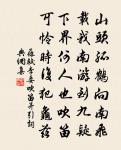 山頭孤鶴向南飛
載我南游到九疑
下界何人也吹笛
可憐時復犯龜茲
蘇軾李委吹笛并引詞
典網集